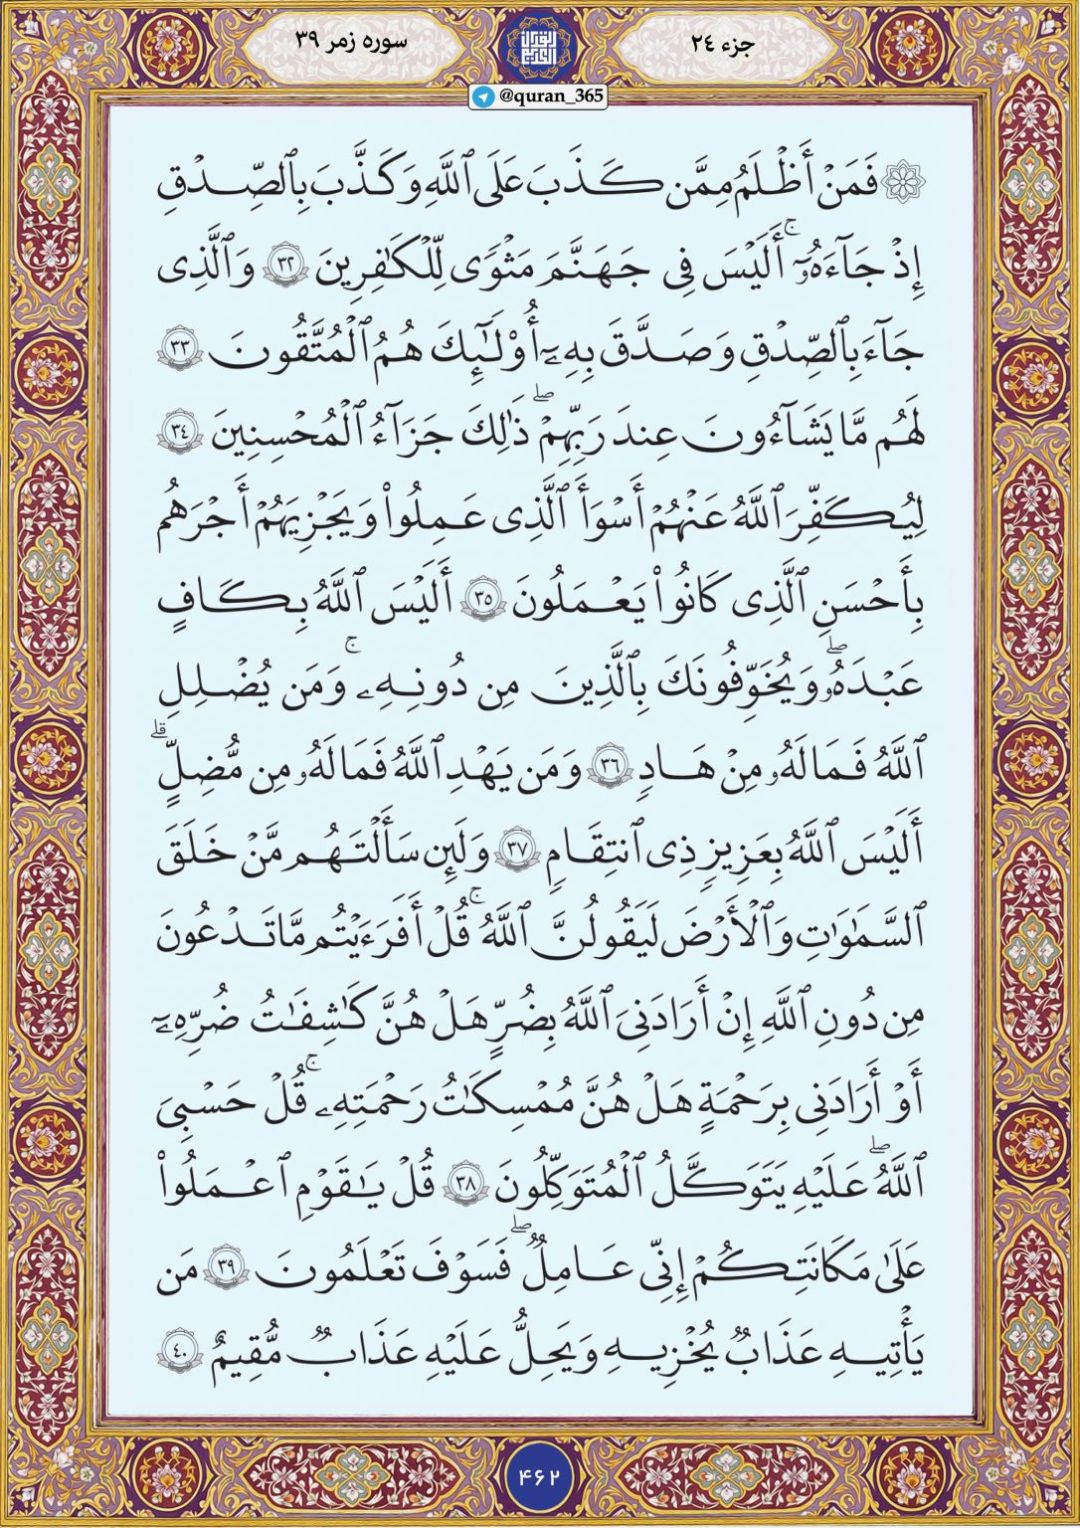 جزء ٢٤
سوره زمر ٣٩
@quran_365
۞ فَمَنْ أَظْلَمُ مِمَّن كَذَبَ عَلَى ٱللَّهِ وَكَذَّبَ بِٱلصِّدْقِ
إِذْ جَآءَهُۥٓ ۚ أَلَيْسَ فِى جَهَنَّمَ مَثْوًى لِّلْكَٰفِرِينَ ٣٢ وَٱلَّذِى
جَآءَ بِٱلصِّدْقِ وَصَدَّقَ بِهِۦٓ أُو۟لَٰٓئِكَ هُمُ ٱلْمُتَّقُونَ ٣٣
لَهُم مَّا يَشَآءُونَ عِندَ رَبِّهِمْ ۖ ذَٰلِكَ جَزَآءُ ٱلْمُحْسِنِينَ ٣٤
لِيُكَفِّرَ ٱللَّهُ عَنْهُمْ أَسْوَأَ ٱلَّذِى عَمِلُوا۟ وَيَجْزِيَهُمْ أَجْرَهُم
بِأَحْسَنِ ٱلَّذِى كَانُوا۟ يَعْمَلُونَ ٣٥ أَلَيْسَ ٱللَّهُ بِكَافٍ
عَبْدَهُۥ ۖ وَيُخَوِّفُونَكَ بِٱلَّذِينَ مِن دُونِهِۦ ۚ وَمَن يُضْلِلِ
ٱللَّهُ فَمَا لَهُۥ مِنْ هَادٍ ٣٦ وَمَن يَهْدِ ٱللَّهُ فَمَا لَهُۥ مِن مُّضِلٍّ ۗ
أَلَيْسَ ٱللَّهُ بِعَزِيزٍ ذِى ٱنتِقَامٍ ٣٧ وَلَئِن سَأَلْتَهُم مَّنْ خَلَقَ
ٱلسَّمَٰوَٰتِ وَٱلْأَرْضَ لَيَقُولُنَّ ٱللَّهُ ۚ قُلْ أَفَرَءَيْتُم مَّا تَدْعُونَ
مِن دُونِ ٱللَّهِ إِنْ أَرَادَنِىَ ٱللَّهُ بِضُرٍّ هَلْ هُنَّ كَٰشِفَٰتُ ضُرِّهِۦٓ
أَوْ أَرَادَنِى بِرَحْمَةٍ هَلْ هُنَّ مُمْسِكَٰتُ رَحْمَتِهِۦ ۚ قُلْ حَسْبِىَ
ٱللَّهُ ۖ عَلَيْهِ يَتَوَكَّلُ ٱلْمُتَوَكِّلُونَ ٣٨ قُلْ يَٰقَوْمِ ٱعْمَلُوا۟
عَلَىٰ مَكَانَتِكُمْ إِنِّى عَامِلٌ ۖ فَسَوْفَ تَعْلَمُونَ ٣٩ مَن
يَأْتِيهِ عَذَابٌ يُخْزِيهِ وَيَحِلُّ عَلَيْهِ عَذَابٌ مُّقِيمٌ ٤٠
۴۶۲